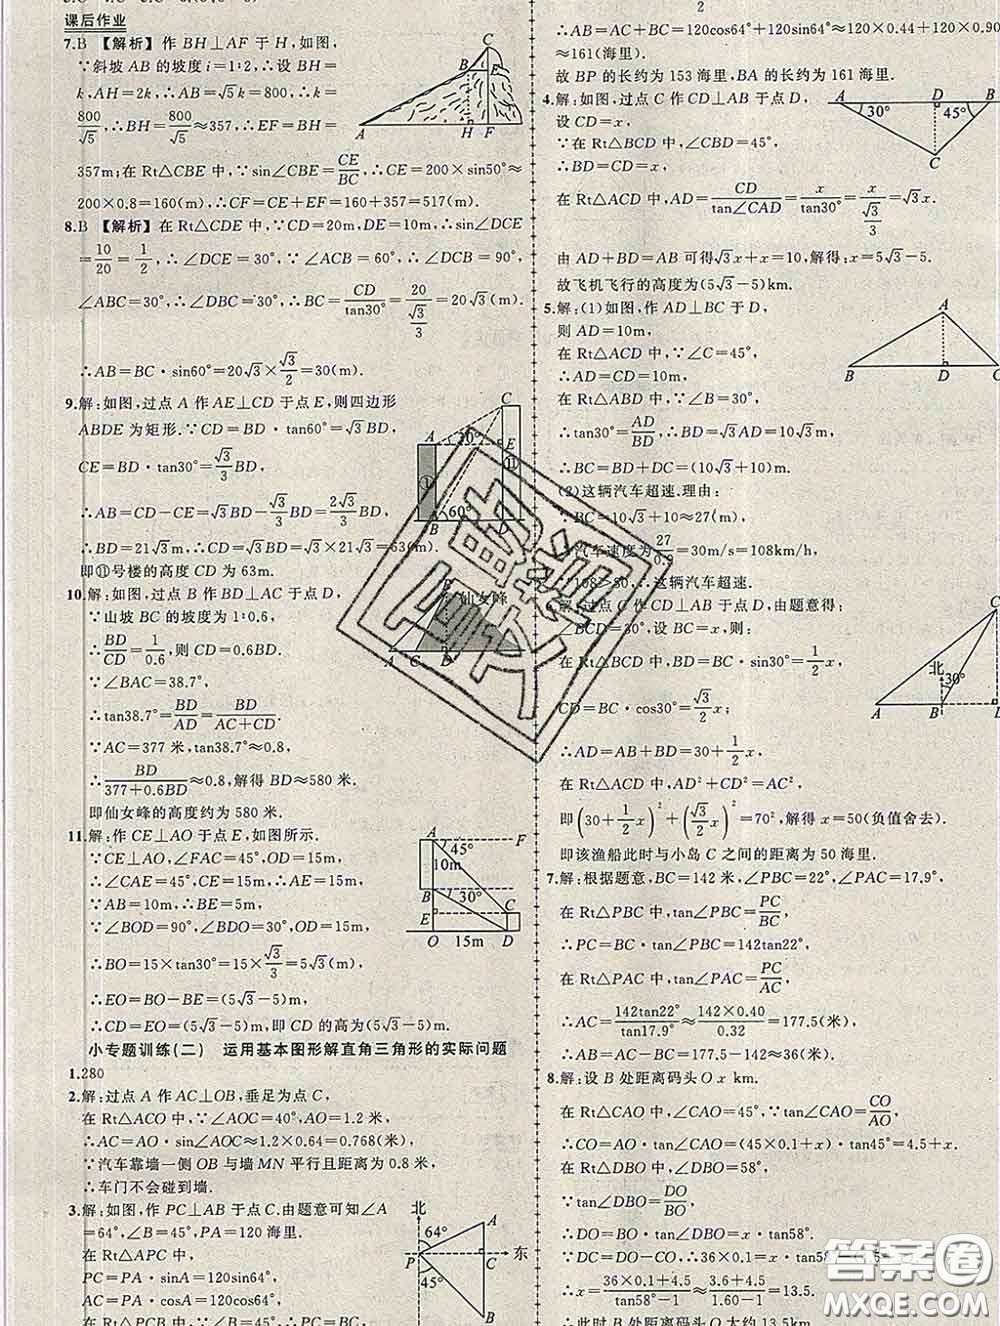 课后作业
7.B 【解析】作 BH⊥AF 于 H,如图,
∵斜坡 AB 的坡度 i=1∶2,∴设 BH=
k,AH=2k,∴AB=√5k=800,∴k=
800/√5,∴BH=800/√5≈357,∴EF=BH=
357m;在 Rt△CBE 中,∵sin∠CBE=CE/BC,∴CE=200×sin50°≈
200×0.8=160(m),∴CF=CE+EF=160+357=517(m).
8.B 【解析】在 Rt△CDE 中,∵CD=20m,DE=10m,∴sin∠DCE
=10/20=1/2,∴∠DCE=30°,∵∠ACB=60°,∴∠DCB=90°,
∠ABC=30°,∴∠DBC=30°,∴BC=CD/tan30°=20/(√3/3)=20√3(m).
∴AB=BC·sin60°=20√3×√3/2=30(m).
9.解:如图,过点 A 作 AE⊥CD 于点 E,则四边形
ABDE 为矩形.∵CD=BD·tan60°=√3BD,
CE=BD·tan30°=√3/3BD,
∴AB=CD-CE=√3BD-√3/3BD=2√3/3BD,
∴BD=21√3m,∴CD=√3BD=√3×21√3=63(m).
即⑪号楼的高度 CD 为 63m.
10.解:如图,过点 B 作 BD⊥AC 于点 D,
∵山坡 BC 的坡度为 1∶0.6,
∴BD/CD=1/0.6,则 CD=0.6BD.
∵∠BAC=38.7°,
∴tan38.7°=BD/AD=BD/(AC+CD).
∵AC=377 米,tan38.7°≈0.8,
∴BD/(377+0.6BD)≈0.8,解得 BD≈580 米.
即仙女峰的高度约为 580 米.
11.解:作 CE⊥AO 于点 E,如图所示.
∵CE⊥AO,∠FAC=45°,OD=15m,
∴∠CAE=45°,CE=15m,
∴AE=15m,∴BE=AE-AB=5m,
∵∠BOD=90°,∠BDO=30°,OD=15m,
∴BO=15×tan30°=15×√3/3=5√3(m),
∴EO=BO-BE=(5√3-5)m,
∴CD=EO=(5√3-5)m,即 CD 的高为(5√3-5)m.
小专题训练(二) 运用基本图形解直角三角形的实际问题
1.280
2.解:过点 A 作 AC⊥OB,垂足为点 C,
在 Rt△ACO 中,∵∠AOC=40°,AO=1.2 米,
∴AC=AO·sin∠AOC≈1.2×0.64=0.768(米),
∵汽车靠墙一侧 OB 与墙 MN 平行且距离为 0.8 米,
∴车门不会碰到墙.
3.解:如图,作 PC⊥AB 于点 C.由题意可知∠A
=64°,∠B=45°,PA=120 海里.
在 Rt△APC 中,
PC=PA·sinA=120sin64°,
AC=PA·cosA=120cos64°,
在 Rt△PCB 中,∵∠B=45°,
2
∴AB=AC+BC=120cos64°+120sin64°≈120×0.44+120×0.90
≈161(海里).
故 BP 的长约为 153 海里,BA 的长约为 161 海里.
4.解:如图,过点 C 作 CD⊥AB 于点 D,
设 CD=x,
∵在 Rt△BCD 中,∠CBD=45°,
∴BD=CD=x,
在 Rt△ACD 中,AD=CD/tan∠CAD=x/tan30°=x/(√3/3)=√3x,
由 AD+BD=AB 可得√3x+x=10,解得:x=5√3-5.
故飞机飞行的高度为(5√3-5)km.
5.解:(1)如图,作 AD⊥BC 于 D,
则 AD=10m,
在 Rt△ACD 中,∵∠C=45°,
∴AD=CD=10m,
在 Rt△ABD 中,∵∠B=30°,
∴tan30°=AD/BD,∴BD=√3AD=10√3m,
∴BC=BD+DC=(10√3+10)m.
(2)这辆汽车超速.理由:
∵BC=10√3+10≈27(m),
∴汽车速度为27/0.9=30m/s=108km/h,
∵108>80,∴这辆汽车超速.
解:过点 C 作 CD⊥AB 于点 D,由题意得:
∠BCD=30°,设 BC=x,则:
在 Rt△BCD 中,BD=BC·sin30°=1/2x,
CD=BC·cos30°=√3/2x;
∴AD=AB+BD=30+1/2x,
在 Rt△ACD 中,AD²+CD²=AC²,
即(30+1/2x)²+(√3/2x)²=70²,解得 x=50(负值舍去).
即该渔船此时与小岛 C 之间的距离为 50 海里.
7.解:根据题意,BC=142 米,∠PBC=22°,∠PAC=17.9°,
在 Rt△PBC 中,tan∠PBC=PC/BC,
∴PC=BC·tan∠PBC=142tan22°,
在 Rt△PAC 中,tan∠PAC=PC/AC,
∴AC=142tan22°/tan17.9°≈142×0.40/0.32=177.5(米),
∴AB=AC-BC=177.5-142≈36(米)
8.解:设 B 处距离码头 O x km.
在 Rt△CAO 中,∠CAO=45°,∵tan∠CAO=CO/AO,
∴CO=AO·tan∠CAO=(45×0.1+x)·tan45°=4.5+x.
在 Rt△DBO 中,∠DBO=58°,
∵tan∠DBO=DO/BO,
∴DO=BO·tan∠DBO=x·tan58°.
∵DC=DO-CO,∴36×0.1=x·tan58°
∴x=(36×0.1+4.5)/(tan58°-1)≈(36×0.1+4.5)/(1.60-1)=13.5.
∴此时 B 处距离码头 O 大约 13.5km.
A B C E H F
C A E 30° ⑪ ① 60° B D
B 仙女峰 A C D
A F 45° 10m B 30° E C O 15m D
北 A 64° P 东 C 45° B
A D B 30° 45° C
A B D C
C 北 30° A B D
答案卷
MXQE.COM